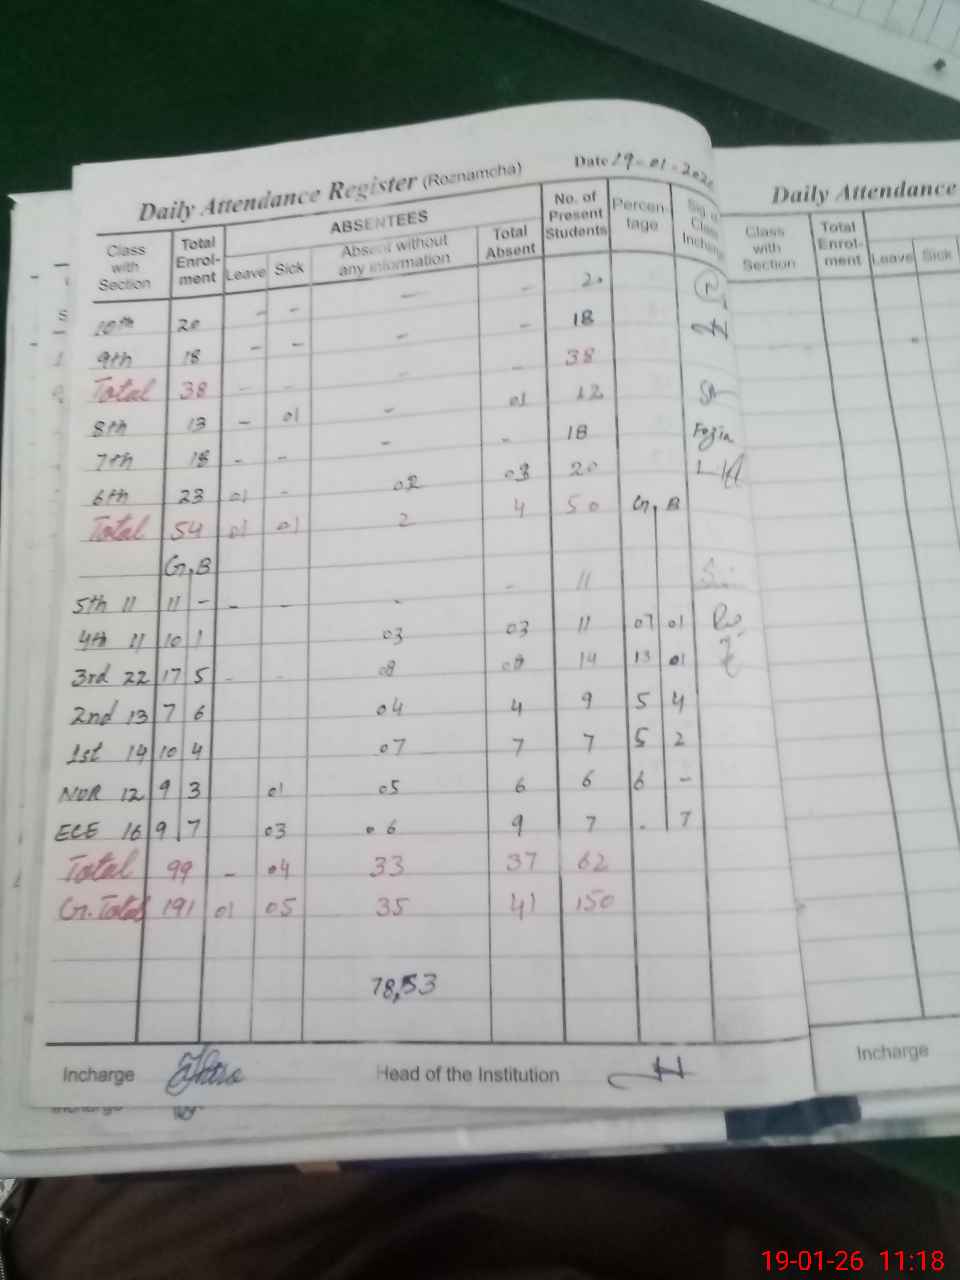 Date 19-01-202
Daily Attendance Register (Roznamcha)
Class with Section | Total Enrol-ment | ABSENTEES | Leave | Sick | Absent without any information | Total Absent | No. of Present Students | Percen-tage | Sig. of Class Incharge
10th 20 - - - - 20
9th 18 - - - - 18
Total 38 - - - - 38
8th 13 - 01 - 01 12
7th 18 - - - - 18 Fozia
6th 23 01 - 02 03 20
Total 54 01 01 2 4 50 G, B
G, B
5th 11 11 - - - - - 11
4th 11 10 1 03 03 11 07 01
3rd 22 17 5 - - 08 08 14 13 01
2nd 13 7 6 04 4 9 5 4
1st 14 10 4 07 7 7 5 2
NUR 12 9 3 01 05 6 6 6 -
ECE 16 9 7 03 06 9 7 - 7
Total 99 - 04 33 37 62
Gr. Total 191 01 05 35 41 150
78,53
Incharge
Head of the Institution
Daily Attendance
Class with Section | Total Enrol-ment | Leave | Sick
Incharge
19-01-26 11:18